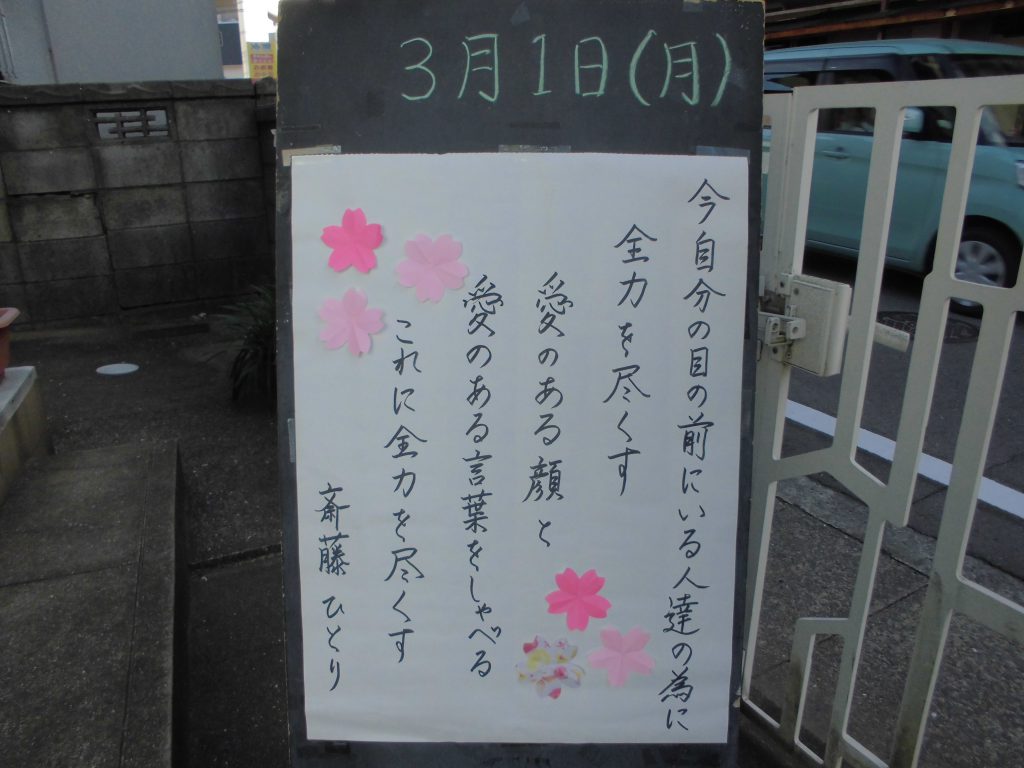 3月1日(月)
今自分の目の前にいる人達の為に
全力を尽くす
愛のある顔と
愛のある言葉をしゃべる
これに全力を尽くす
斎藤ひとり